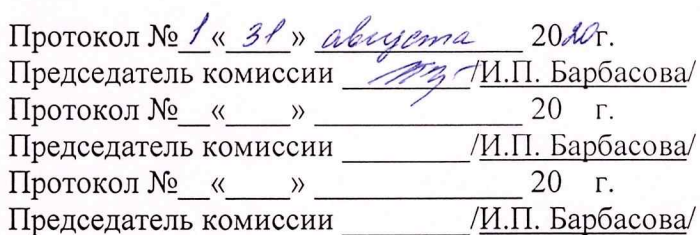 Протокол № 1 « 31 » августа 2020г.
Председатель комиссии /И.П. Барбасова/
Протокол №__«____» ______________ 20 г.
Председатель комиссии _________/И.П. Барбасова/
Протокол №__«____» ______________ 20 г.
Председатель комиссии _________/И.П. Барбасова/